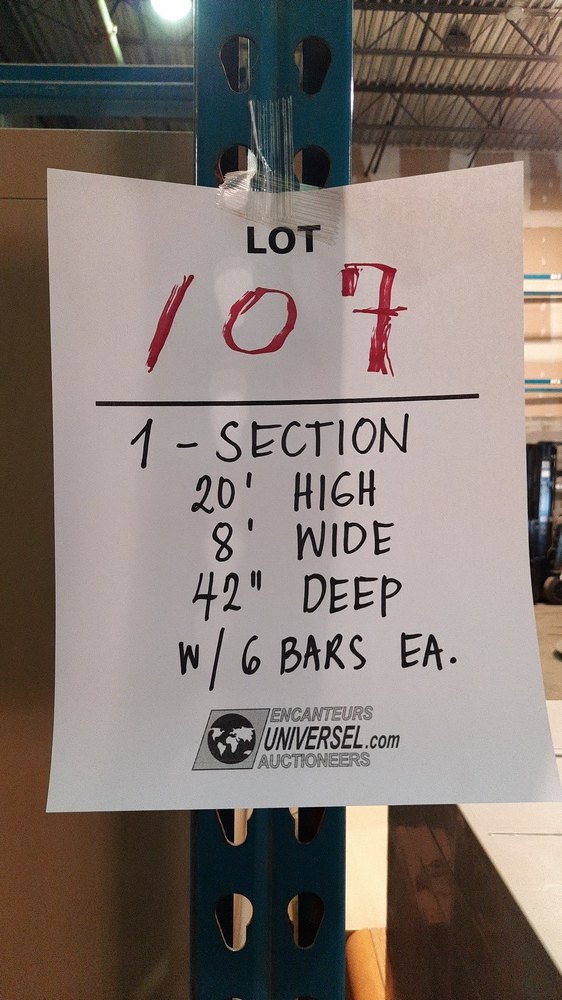 LOT
107
1 - SECTION
20' HIGH
8' WIDE
42" DEEP
W/ 6 BARS EA.
ENCANTEURS
UNIVERSEL.com
AUCTIONEERS